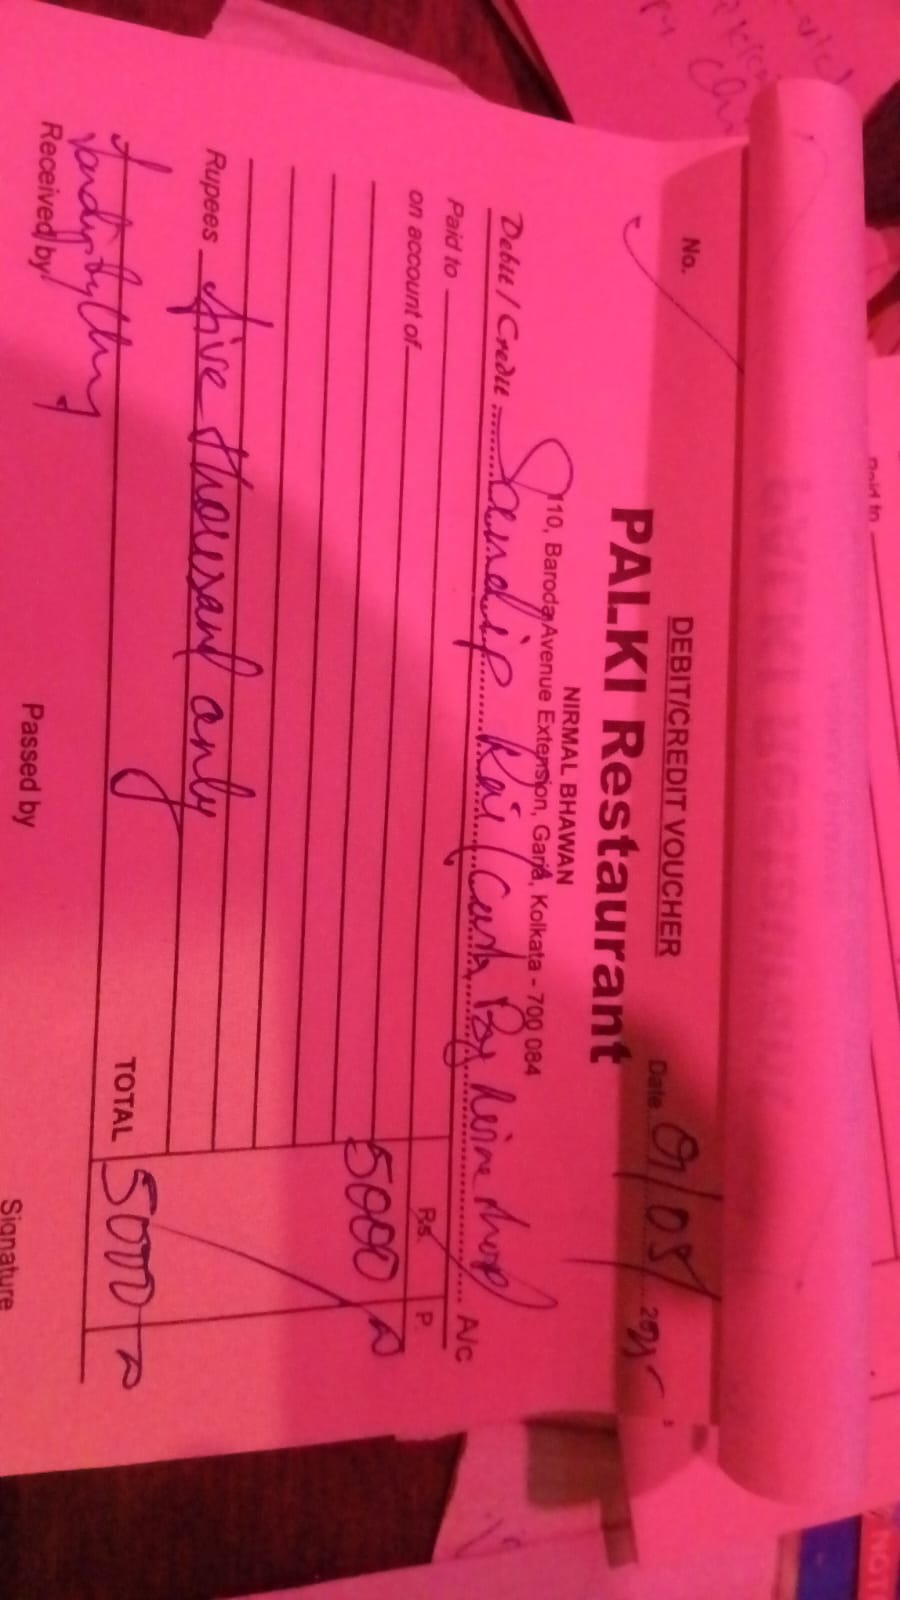 DEBIT/CREDIT VOUCHER
No.
Date 01/05/2025
PALKI Restaurant
NIRMAL BHAWAN
110, Baroda Avenue Extension, Garia, Kolkata - 700 084
Debit / Credit Sandip Rai (Cash Pay A/c
Paid to
Rs. P.
on account of
5000
Rupees five thousand only
TOTAL 5000
Received by
Passed by
Signature
Paid to